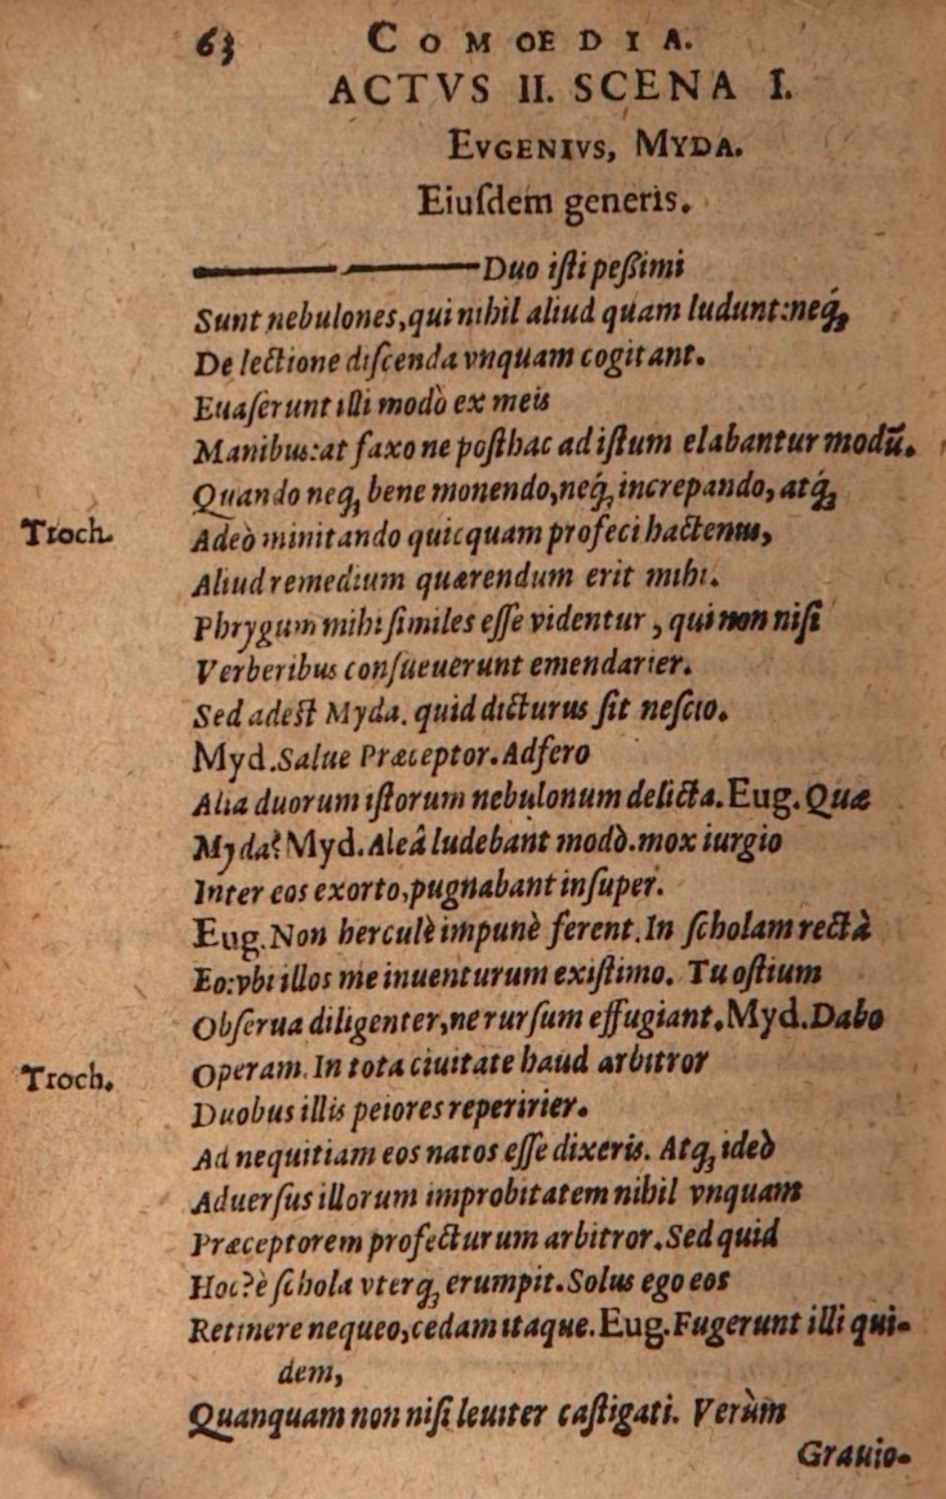 63 COMOEDIA.
ACTVS II. SCENA I.
EVGENIVS, MYDA.
Eiuſdem generis.
—— ——Duo iſti peßimi
Sunt nebulones,qui nihil aliud quam ludunt:neq́ꝫ
De lectione diſcenda vnquam cogitant.
Euaſerunt illi modò ex meis
Manibus:at faxo ne poſthac ad iſtum elabantur modū.
Quando neqꝫ bene monendo,neq́ꝫ increpando, atq́ꝫ
Troch. Adeò minitando quicquam profeci hactenus,
Aliud remedium quærendum erit mihi.
Phrygum mihi ſimiles eſſe videntur , qui non niſi
Verberibus conſueuerunt emendarier.
Sed adest Myda. quid dicturus ſit neſcio.
Myd.Salue Præceptor.Adfero
Alia duorum iſtorum nebulonum delicta.Eug.Quæ
Myda? Myd.Aleâ ludebant modò.mox iurgio
Inter eos exorto,pugnabant inſuper.
Eug.Non herculè impunè ferent.In ſcholam rectà
Eo:vbi illos me inuenturum exiſtimo. Tu oſtium
Obſerua diligenter,ne rurſum effugiant.Myd.Dabo
Troch. Operam.In tota ciuitate haud arbitror
Duobus illis peiores reperirier.
Ad nequitiam eos natos eſſe dixeris. Atqꝫ ideò
Aduerſus illorum improbitatem nihil vnquam
Præceptorem profecturum arbitror.Sed quid
Hoc?è ſchola vterqꝫ erumpit.Solus ego eos
Retinere nequeo,cedam itaque.Eug.Fugerunt illi qui-
dem,
Quanquam non niſi leuiter caſtigati. Verùm
Grauio-